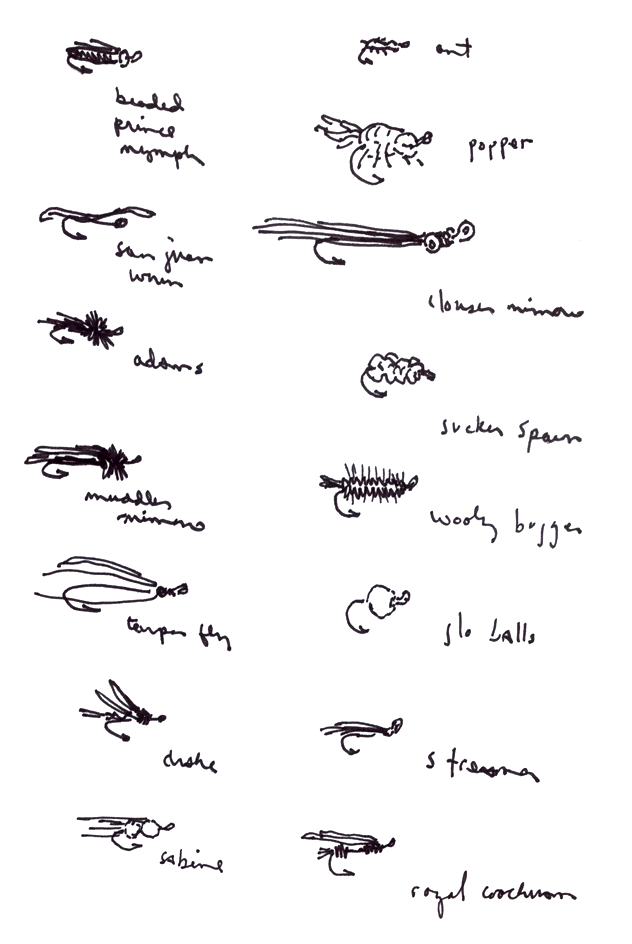 beaded
prince
nymph
san juan
worm
adams
muddler
minnow
tarpon fly
drake
sabine
ant
popper
clouser minnow
sucker spawn
wooly bugger
glo balls
streamer
royal coachman